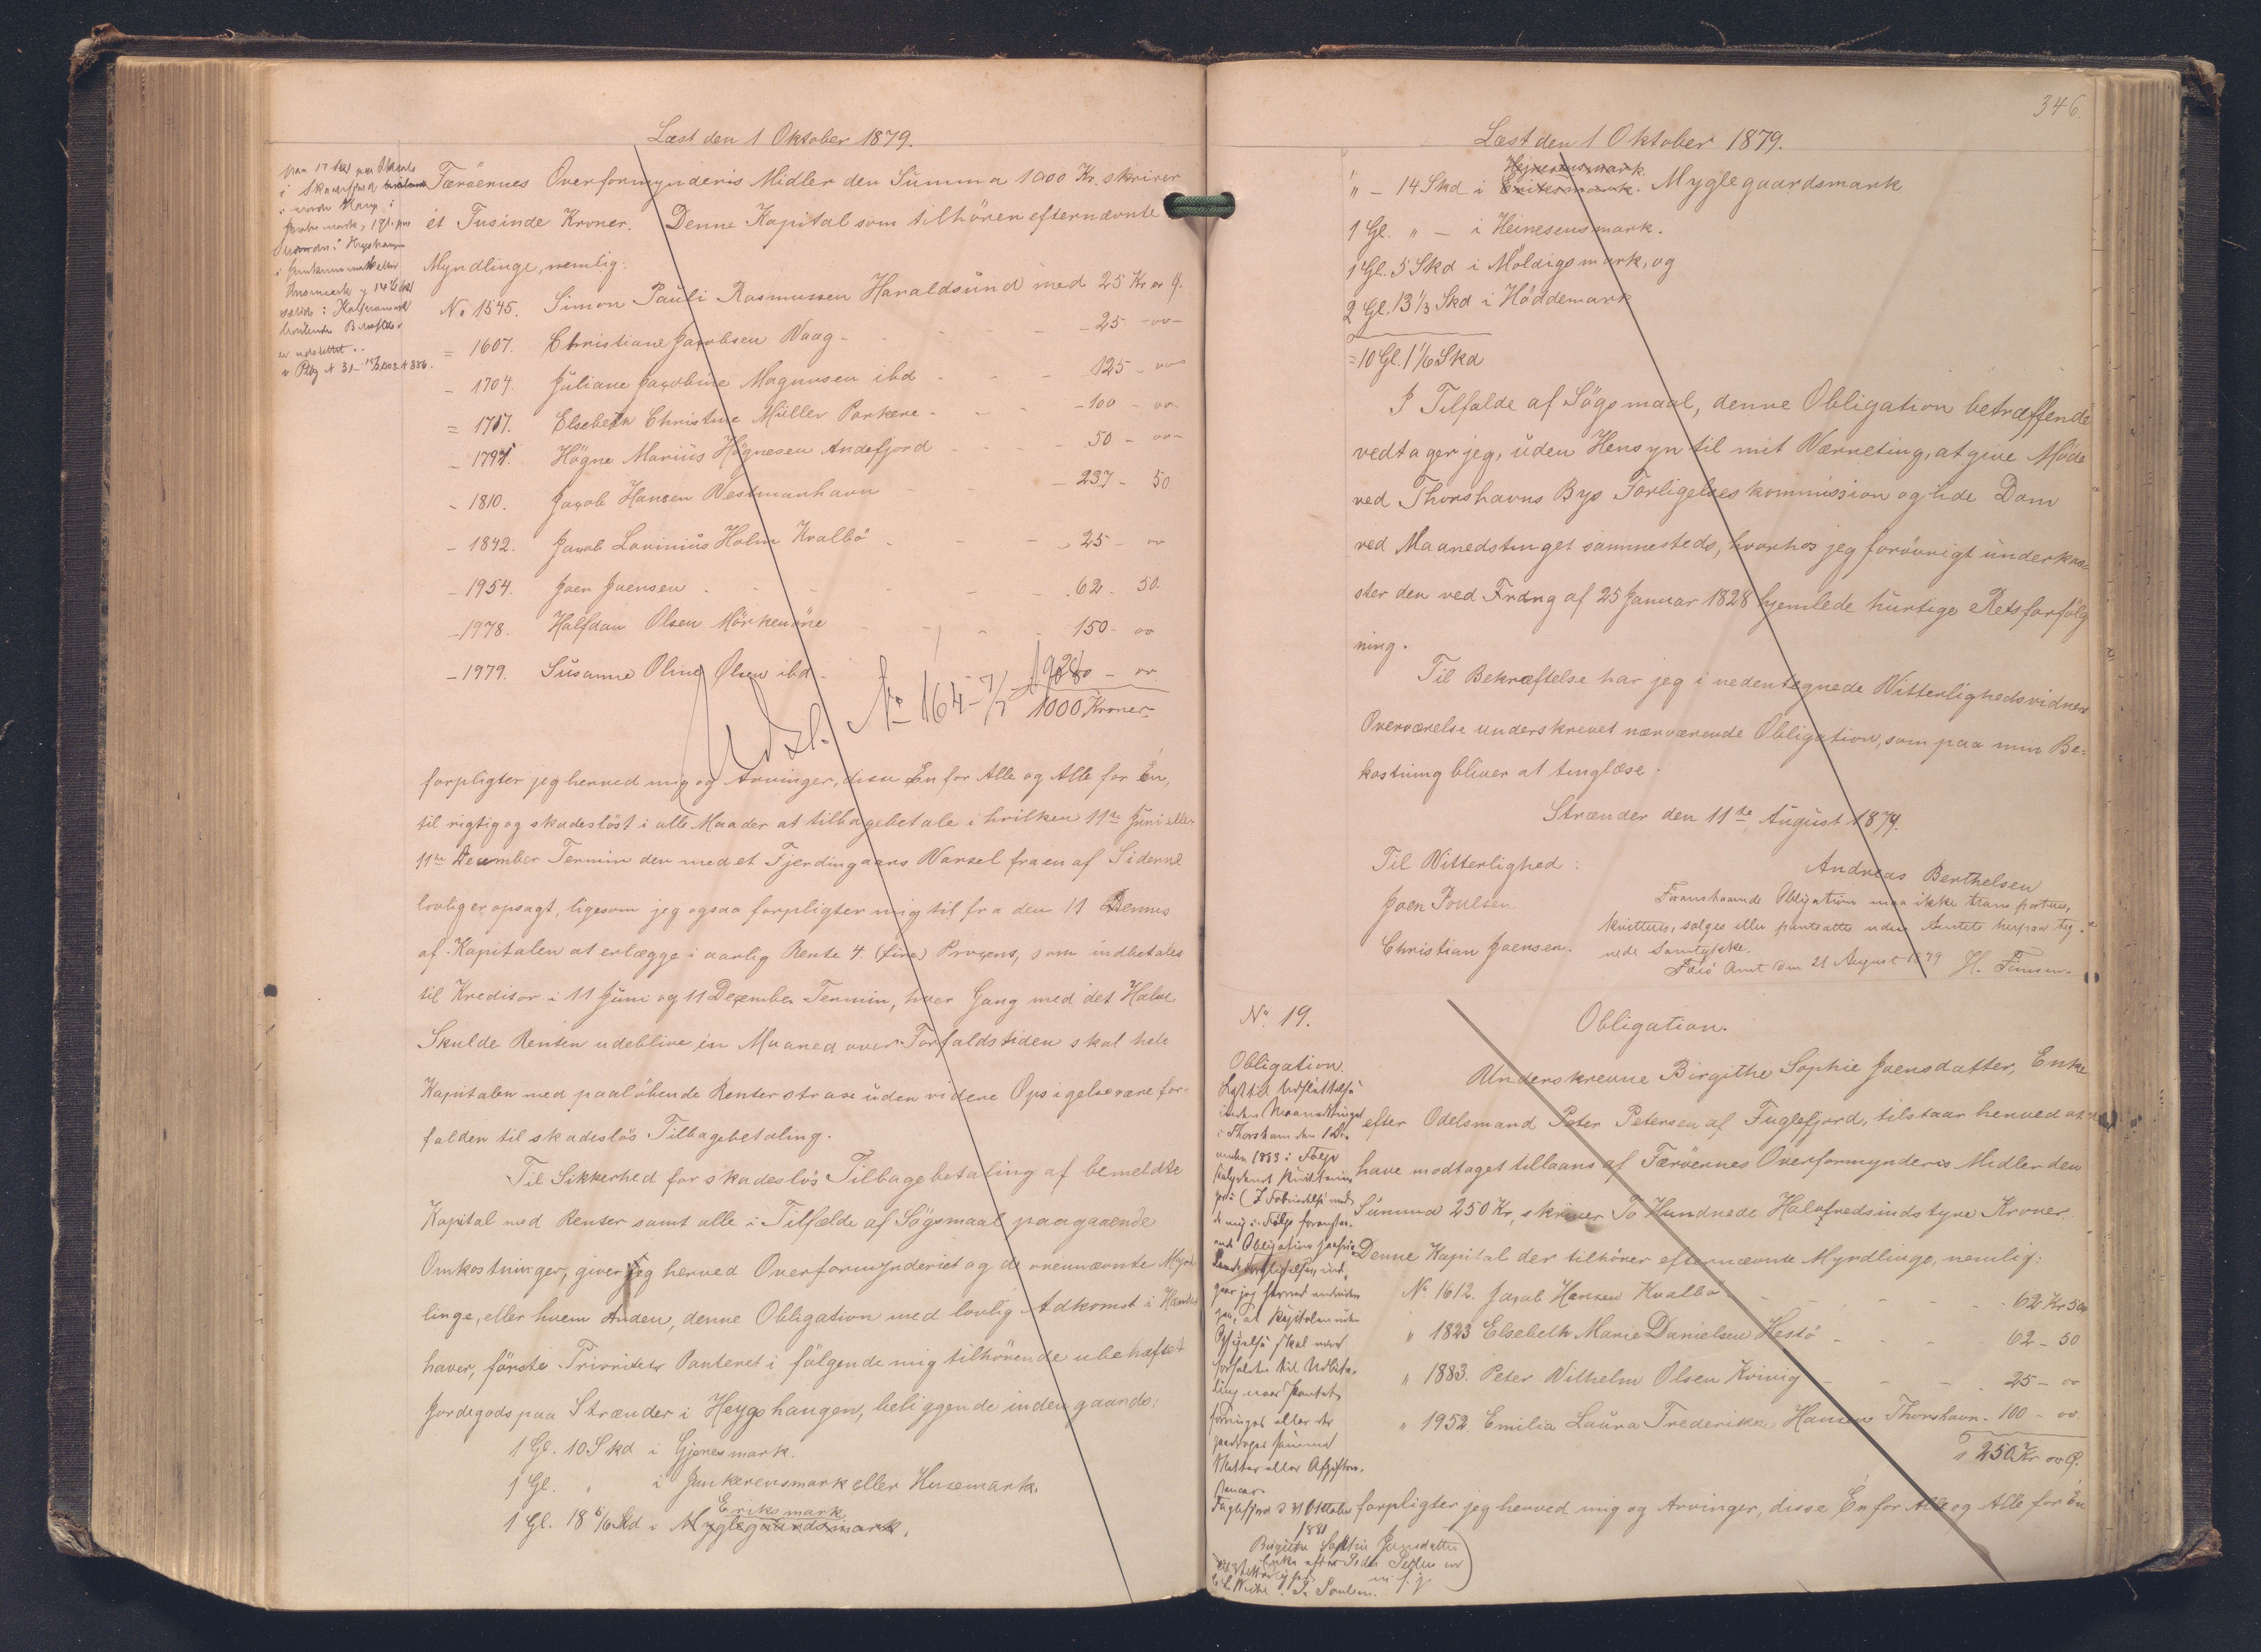 Læst den 1 Oktober 1879.
Færöernes Overformynderis Midler den Summa 1000 Kr. skriver
ét Tusinde Kroner. Denne Kapital som tilhörer efternævnte
Myndlinge, nemlig:
No 1545. Simon Pauli Rasmussen Haraldsund med 25 Kr oo Ø.
= 1607. Christiane Jacobsen Vaag - 25 - oo -
- 1704. Juliane Jacobine Magnusen ibd - 125 - oo
= 1717. Elsebeth Christine Müller Porkere - 100 - oo
- 1791. Högne Marius Högnesen Andefjord - 50 - oo -
- 1810. Jacob Hansen Vestmanhavn - 237 - 50.
- 1842. Jacob Lavinius Holm Kvalbö - 25 - oo
- 1954. Joen Joensen - 62 - 50.
- 1978. Halfdan Olsen Mörkenöre - 150 - oo
- 1979. Susanne Oline Olsen ibd - 200 - oo
1000 Kroner
Udsl. No 164 - 7/7
forpligter jeg herved mig og Arvinger, disse Én for Alle og Alle for Én,
til rigtig og skadeslöst i alle Maader at tilbagebetale i hvilken 11te Juni eller
11te December Termin den med et Fjerdingaars Varsel fra en af Siderne
lovlig er opsagt, ligesom jeg ogsaa forpligter mig til fra den 11 Dennes
af Kapitalen at erlægge i aarlig Rente 4 (fire) Procens, som indbetales
til Kreditor i 11 Juni og 11 December Termin, hver Gang med det Halve
Skulde Renten udeblive én Maaned over Forfaldstiden skal hele
Kapitalen med paalöbende Renter strax uden videre Opsigelse være for-
falden til skadeslös Tilbagebetaling.
Til Sikkerhed for skadeslös Tilbagebetaling af bemeldte
Kapital med Renter samt alle i Tilfælde af Sögsmaal paagaaende
Omkostninger, giver jeg herved Overformynderiet og de ovennævnte Mynd
linge, eller hvem Anden, denne Obligation med lovlig Adkomst i Hænder
haver, förste Prioritets Panteret i fölgende mig tilhörende ubehæftet
Jordegods paa Strænder i Heygshaugen, beliggende indengaards:
1 Gl. 10 Skd i Gjonesmark.
1 Gl. " i Junkerensmark eller Husemark.
Eriksmark
1 Gl. 18 5/6 Skd i Myglegaardsmark,
346.
Læst den 1 Oktober 1879.
Hejnesensmark
" - 14 Skd i Eriksmark. Myglegaardsmark
1 Gl. " - i Heinesensmark.
1 Gl. 5 Skd i Möldigsmark, og
2 Gl. 13 1/3 Skd i Höddemark
= 10 Gl. 1 1/6 Skd
I Tilfælde af Sögsmaal, denne Obligation betræffende
vedtager jeg, uden Hensyn til mit Værneting, at give Möde
ved Thorshavns Bys Forligelseskommission og lide Dom
ved Maanedstinget sammesteds, hvorhos jeg forövrigt underkas-
ster den ved Frdng af 25 Januar 1828 hjemlede hurtige Retsforfölg
ning.
Til Bekræftelse har jeg i nedentegnede Vitterlighedsvidners
Overværelse underskrevet nærværende Obligation, som paa min Be-
kostning bliver at tinglæse.
Strænder den 11te August 1879.
Til Vitterlighed:
Andreas Berthelsen
Joen Poulsen
Christian Joensen.
Foranstaaende Obligation maa ikke transporteres,
kvitteres, sælges eller pantsættes uden Amtets herpaa teg-
nede Samtykke.
Færö Amt den 21 August 1879 H. Finsen.
No. 19.
Obligation.
Obligation.
Underskrevne Birgithe Sophie Joensdatter, Enke
efter Odelsmand Peter Petersen af Fuglefjord, tilstaar herved at
have modtaget tillaans af Færöernes Overformynderis Midler den
Summa 250 Kr, skriver To Hundrede Halvfredsindstyve Kroner.
Denne Kapital der tilhörer efternævnte Myndlinge, nemlig:
No 1612. Jacob Hansen Kvalbö - 62 Kr 50
" 1823 Elsebeth Marie Danielsen Hestö - 62 - 50
" 1883. Peter Vilhelm Olsen Kvivig - 25 - oo
" 1952. Emilia Laura Frederikke Hansen Thorshavn - 100 - oo.
250 Kr oo Ø.
forpligter jeg herved mig og Arvinger, disse Én for Alle og Alle for Én
Fuglefjord d 31 Oktober
1881
Birgitte Sophie Joensdatter
Enke efter Peder Peders